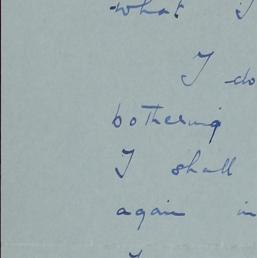 what I
I do
bothering
I shall
again in